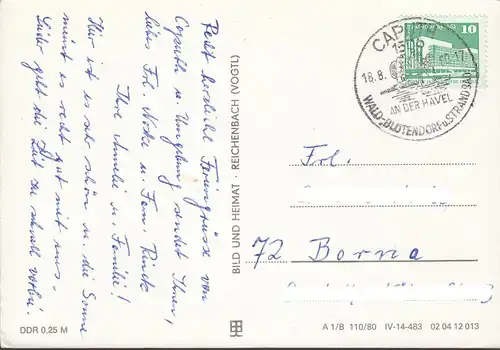 Recht herzliche Feriengrüsse von
Caputh u. Umgebung sendet Ihnen,
liebes Frl. Nocke u. Fam.
Ihre Amelie u. Familie!
Hier ist es sehr schön u. die Sonne
meint es recht gut mit uns.
Leider geht die Zeit zu schnell vorbei.
BILD UND HEIMAT · REICHENBACH (VOGTL)
CAPUTH
18.8.
AN DER HAVEL
WALD-BLÜTENDORF u. STRANDBAD
10
Frl.
72 Borna
DDR 0,25 M
A 1/B 110/80 IV-14-483 02 04 12 013